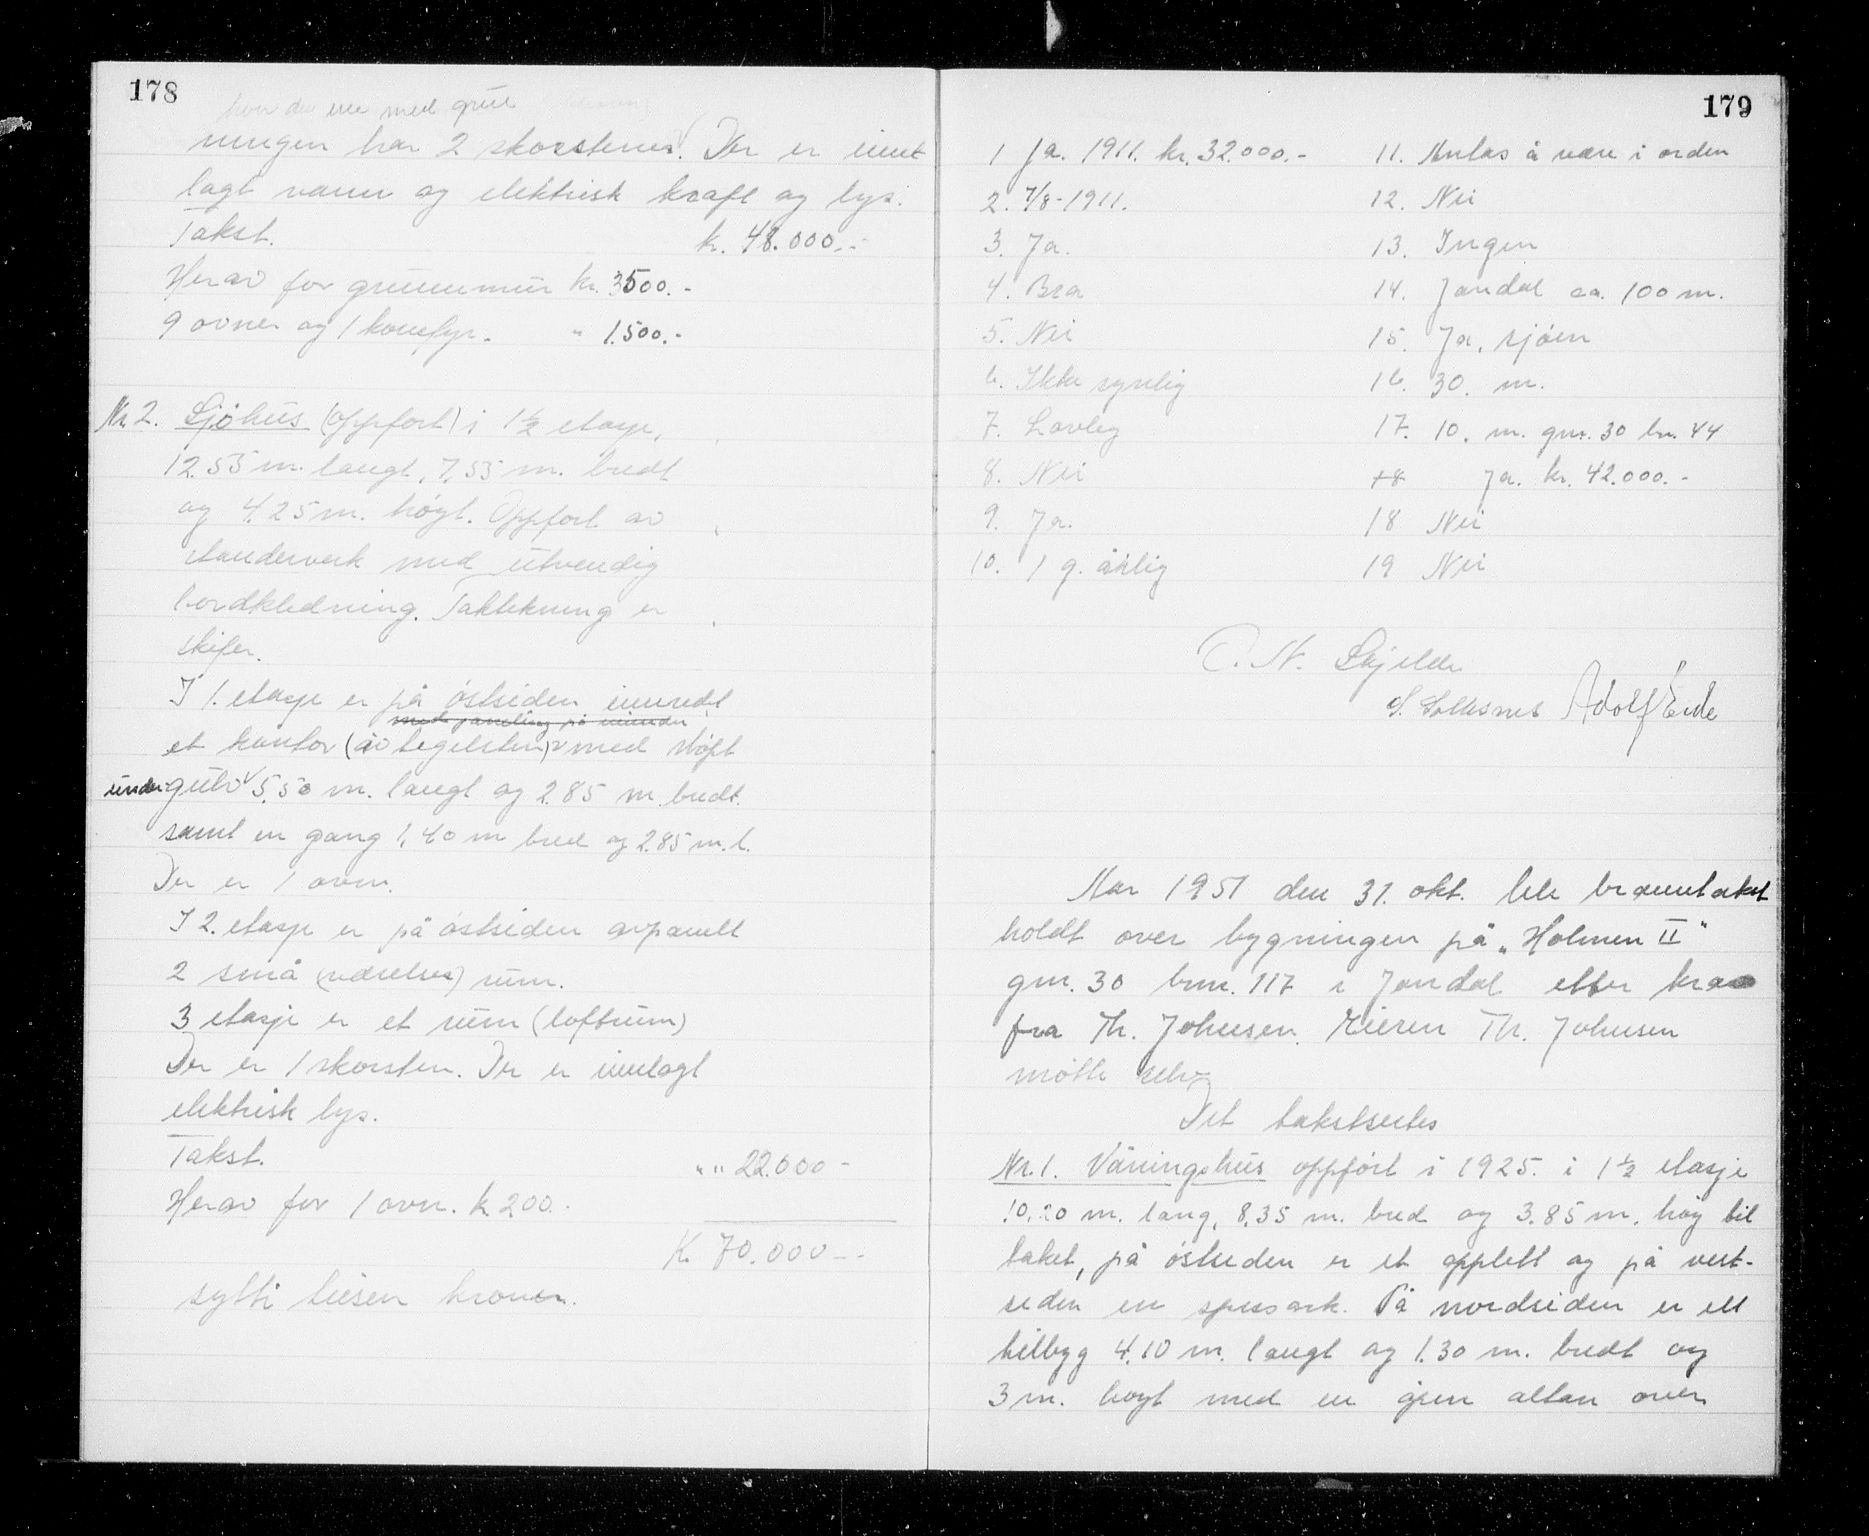 178
hvor der ene med grue
ningen har 2 skorstener. Der er innt
lagt vann og elektrisk kraft og lys.
Takst. kr. 48.000.-
Herav for grunnmur kr. 3500.-
9 ovner og 1 komfyr. " 1.500.-
Nr. 2. Sjøhus (oppført) i 1½ etasje,
12.55 m. langt, 7,55 m. bredt
og 4.25 m. høgt. Oppført av
standerverk med utvendig
bordkledning. Taktekning er
skifer.
I 1. etasje er på østsiden innredt
et kontor (av tegelsten) med støpt
under gulv 5.50 m. langt og 2.85 m. bredt.
samt en gang 1,40 m bred og 2.85 m. l.
Der er 1 ovn.
I 2. etasje er på østsiden avpanelt
2 små (værelser) rum.
3 etasje er et rum (loftrum)
Der er 1 skorsten. Der er innlagt
elektrisk lys.
Takst. " " 22.000 -
Herav for 1 ovn. k. 200.-
K. 70.000 - -
sytti tusen kroner.
179
1 Ja. 1911. kr. 32.000.-
2. 7/8-1911.
3. Ja.
4. Bra
5. Nei
6. Ikke synlig
7. Lovleg
8. Nei
9. Ja.
10. 1 g. årlig
11. Antas å være i orden
12. Nei
13. Ingen
14. Jondal ca. 100 m.
15. Ja, sjøen
16. 30. m.
17. 10. m. gnr. 30 bn. 44
18 Ja. kr. 42.000.-
18 Nei
19 Nei
O. N. Skjelde
S. Solesnes Adolf Eide
Aar 1951 den 31. okt. ble branntakst
holdt over bygningen på „Holmen II"
gnr. 30 bnr. 117 i Jondal etter krav
fra Th. Johnsen. Eieren Th. Johnsen
møtte selv.
Det takstsertes
Nr. 1. Våningshus oppført i 1925. i 1½ etasje
10.20 m. lang, 8.35 m. bred og 3.85 m. høg til
taket, på østsiden er et opplett og på vest-
siden en spissark. På nordsiden er ett
tilbygg 4.10 m. langt og 1.30 m. bredt og
3 m. høgt med en åpen altan over